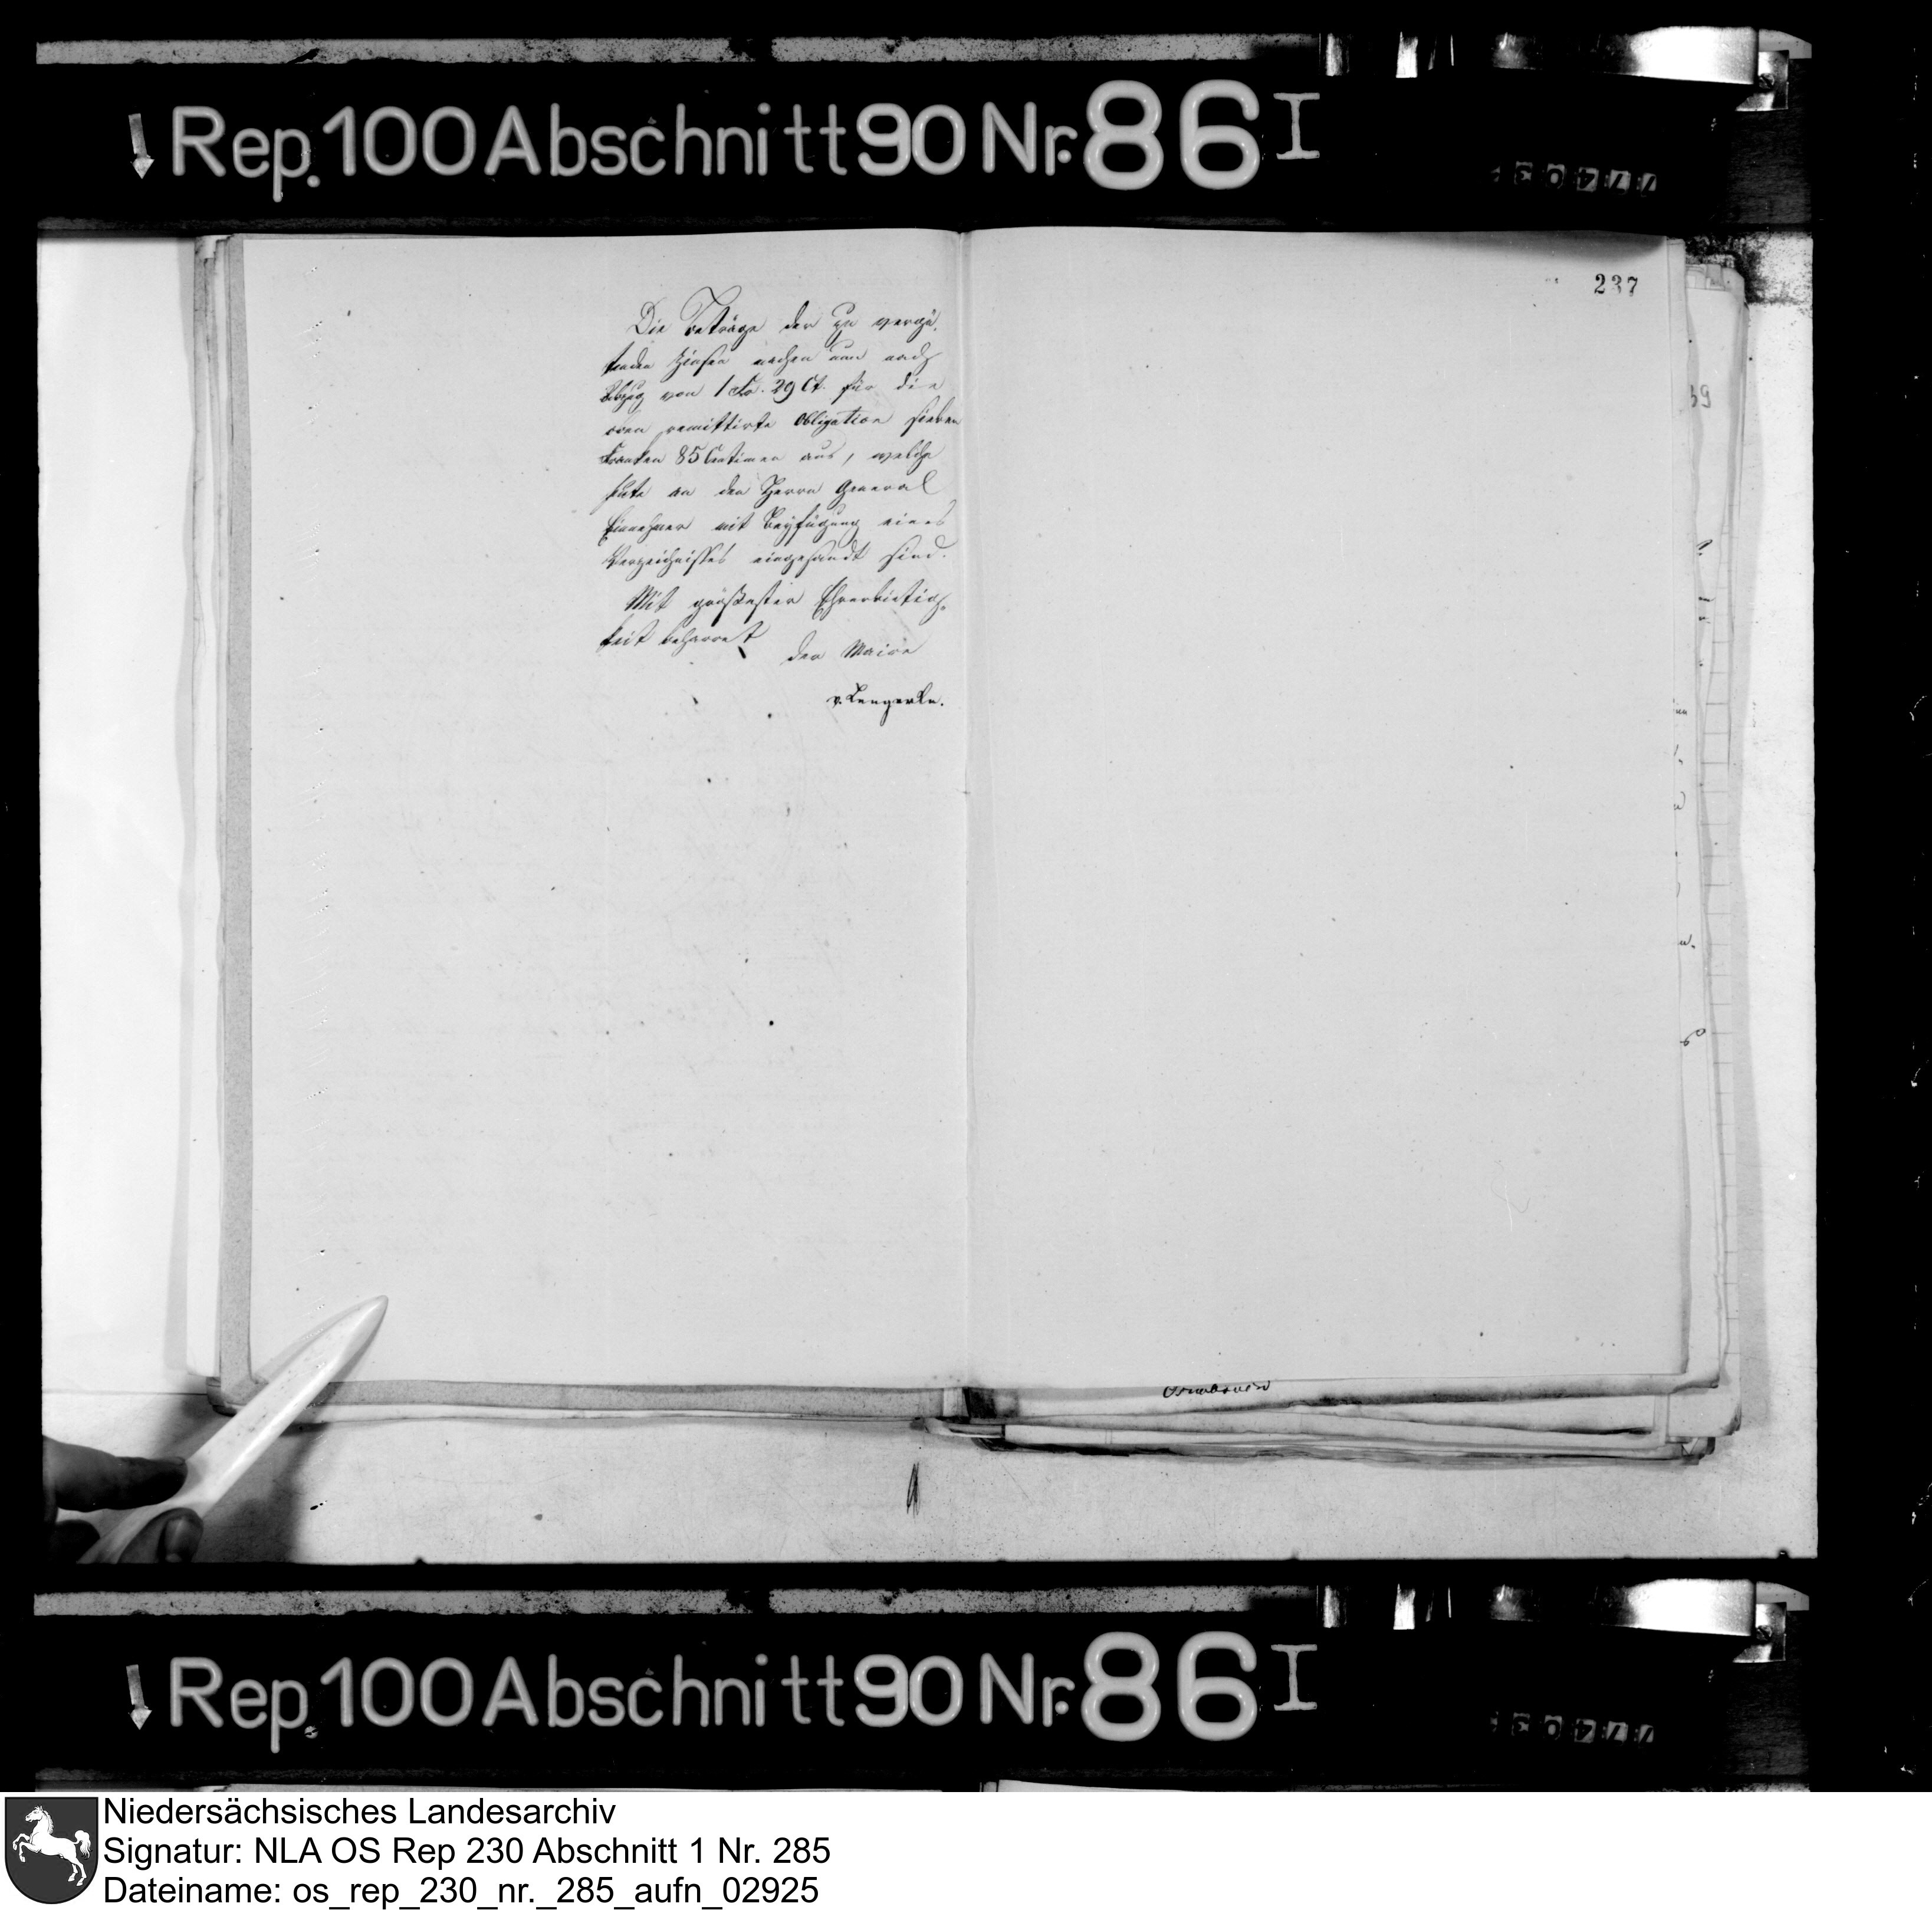 Rep. 100 Abschnitt 90 Nr. 86 I
237
Die Beträge der zu vergü-
tenden Zinsen machen nun nach
Abzug von 1 Fr. 29 Ct. für die
remittirte Obligation sieben
Franken 85 Centimen aus, welche
heute an den Herrn General
Einnehmer mit Beyfügung eines
Verzeichnisses eingesandt sind.
Mit größester Ehrerbietig-
keit beharret
der Maire
v. Lengerke.
59
Rep. 100 Abschnitt 90 Nr. 86 I
Niedersächsisches Landesarchiv
Signatur: NLA OS Rep 230 Abschnitt 1 Nr. 285
Dateiname: os_rep_230_nr._285_aufn_02925